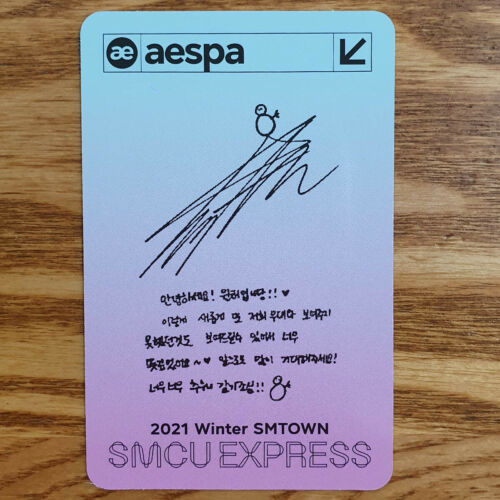 ae aespa
안녕하세요! 윈터입니당!! ♥
이렇게 새롭게 또 저희 무대랑 보여주지
못했던것도 보여드릴수 있어서 너무
뜻깊었어요~♥ 앞으로도 많이 기대해주세요!
너무너무 추우니 감기조심!!
2021 Winter SMTOWN
SMCU EXPRESS